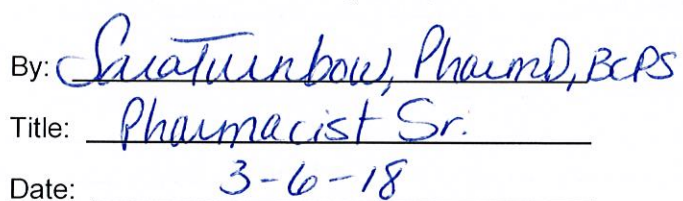 By: Sara Turnbow, PharmD, BCPS
Title: Pharmacist Sr.
Date: 3-6-18